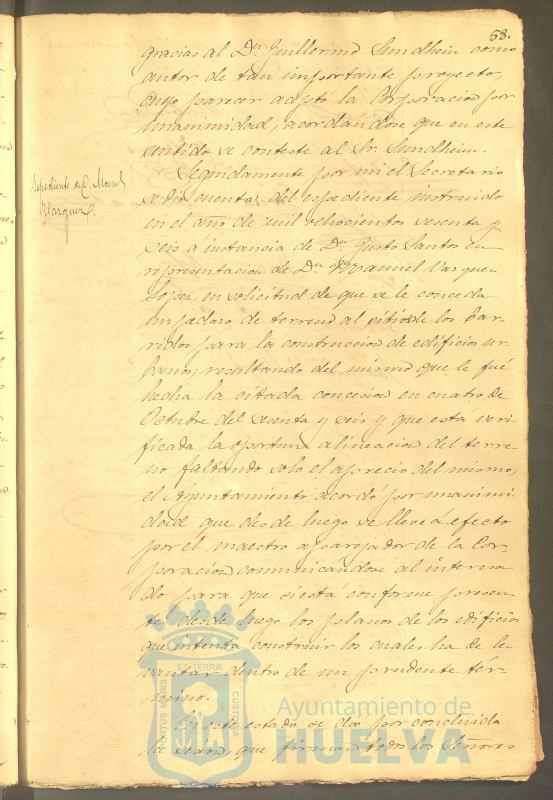 58.
gracias al Dn. Guillermo Sundhein como
autor de tan importante proyecto,
cuyo parecer adoptó la Corporacion por
unanimidad, acordandose que en este
sentido se conteste al Sr. Sundhein.
Expediente de D. Manuel
Vazquez.
Seguidamente por mi el Secretario
se dio cuenta del espediente instruido
en el año de mil ochocientos sesenta y
seis a instancia de Dn. Justo Santos en
representacion de Dn. Manuel Vazquez
Lopez, en solicitud de que se le conceda
un pedazo de terreno al sitio de los bar-
rialos para la construccion de edificios ur-
banos, resultando del mismo que le fué
hecha la citada concesion en cuatro de
Octubre del sesenta y seis y que esta veri-
ficada la oportuna alineacion del terre-
no faltando solo el aprecio del mismo,
el Ayuntamiento acordó por unanimi-
dad que desde luego se lleve á efecto
por el maestro aparejador de la Cor-
poracion, comunicandose al interesa-
do para que si esta conforme presen-
te desde luego los planos de los edificios
que intenta construir los cuales ha de le-
vantar dentro de un prudente tér-
mino.
En este estado se dio por concluida
la sesion, que firman todos los Señores
PORTUS MARIS
ET TERRÆ
CUSTODIA
Ayuntamiento de
HUELVA